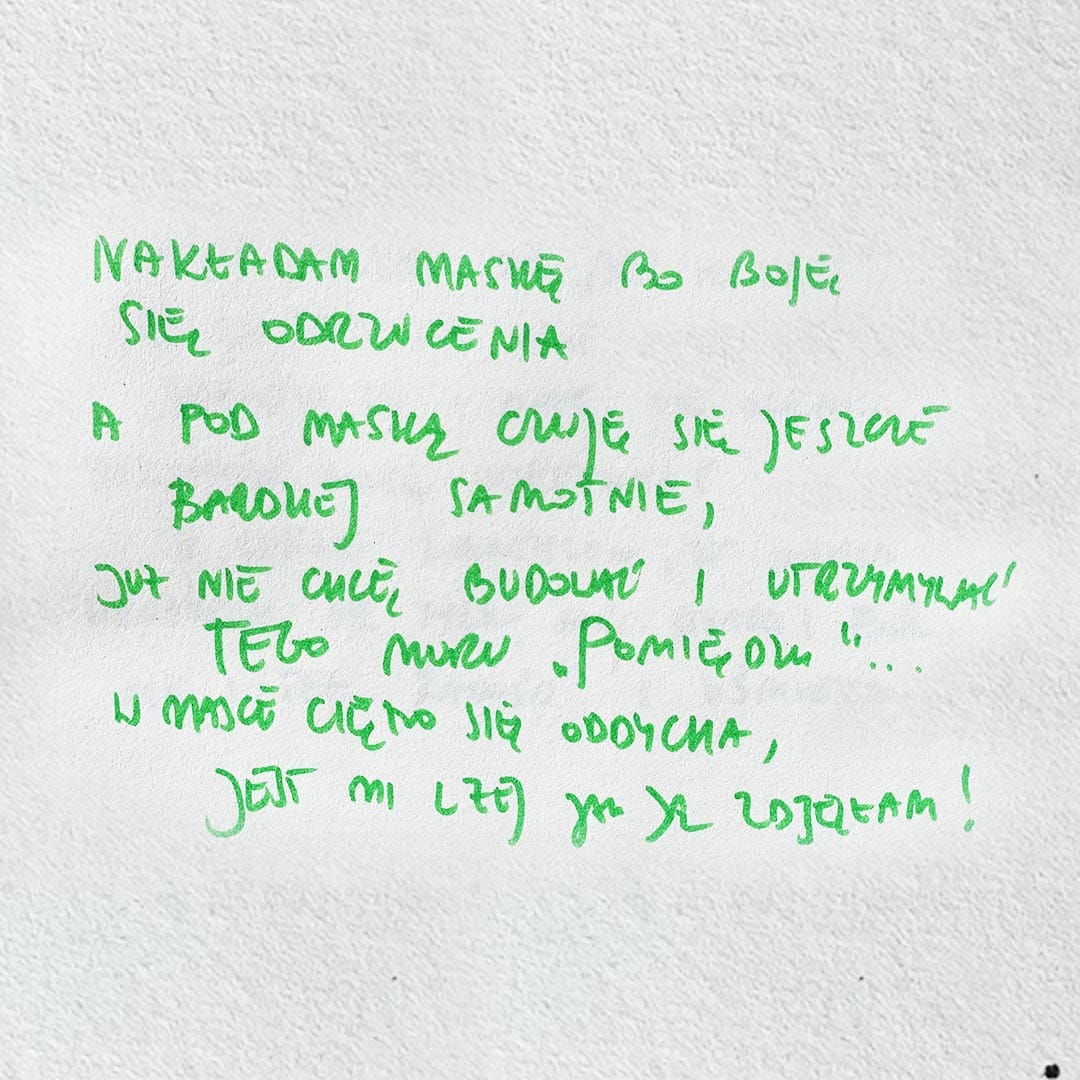 NAKŁADAM MASKĘ BO BOJĘ
SIĘ ODRZUCENIA
A POD MASKĄ CZUJĘ SIĘ JESZCZE
BARDZIEJ SAMOTNIE,
JUŻ NIE CHCĘ BUDOWAĆ I UTRZYMYWAĆ
TEGO MURU „POMIĘDZY“...
W MASCE CIĘŻKO SIĘ ODDYCHA,
JEST MI LŻEJ JAK JĄ ZDJĘŁAM!